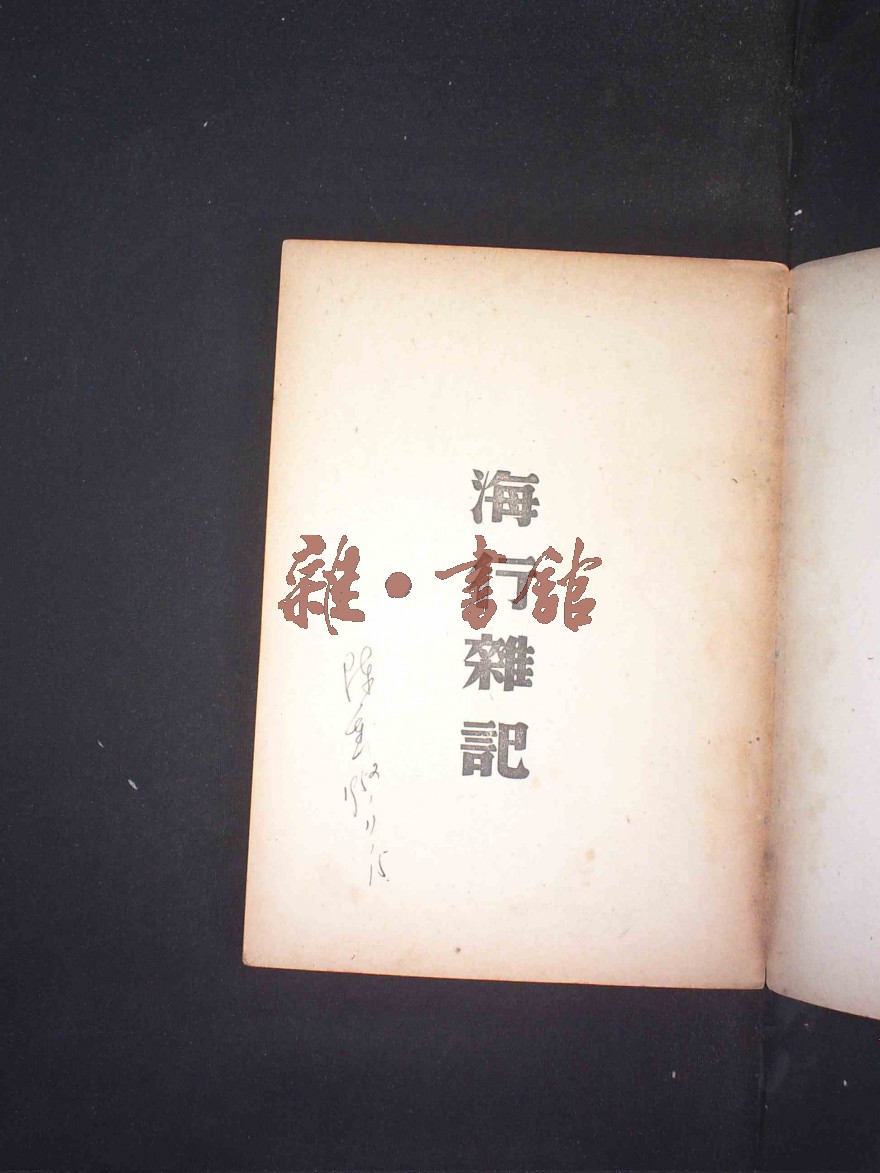 海行雜記
雜·書館
陈
1952.11.15